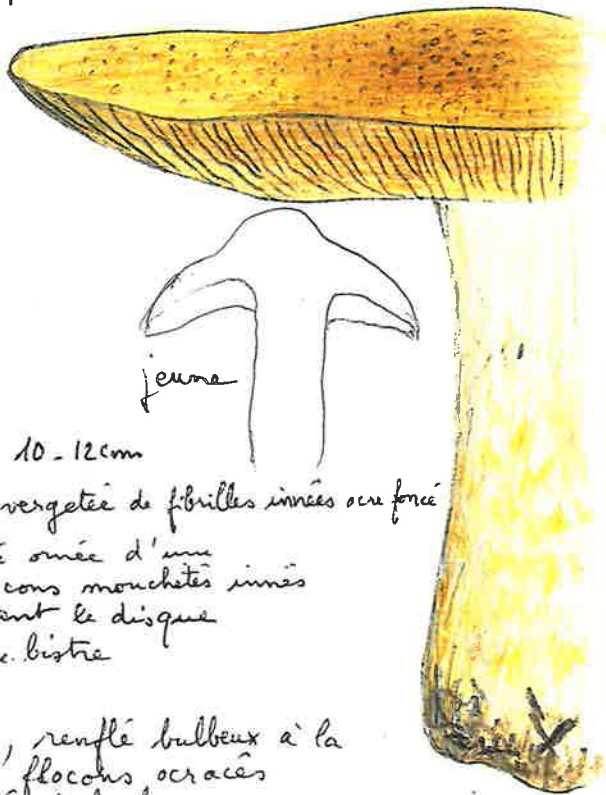 jeune
10-12cm
vergetée de fibrilles innées ocre foncé
ornée d'une
cons mouchetés innés
ent le disque
bistre
, renflé bulbeux à la
flocons ocracés